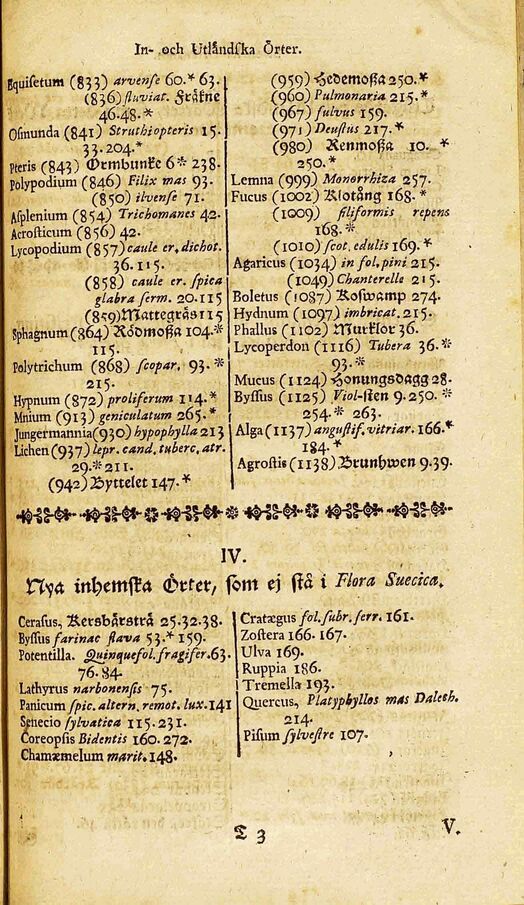 In- och Utländſka Örter.
Equiſetum (833) arvenſe 60.* 63.
(836) fluviat. Fräkne
46.48.*
Oſmunda (841) Struthiopteris 15.
33.204.*
Pteris (843) Ormbunke 6* 238.
Polypodium (846) Filix mas 93.
(850) ilvenſe 71.
Aſplenium (854) Trichomanes 42.
Acroſticum (856) 42.
Lycopodium (857) caule er. dichot.
36.115.
(858) caule er. ſpica
glabra ſerm. 20.115
(859) Mattegräs 115
Sphagnum (864) Rödmoßa 104.*
115.
Polytrichum (868) ſcopar. 93.*
215.
Hypnum (872) proliferum 114.*
Mnium (913) geniculatum 265.*
Jungermannia (930) hypophylla 213
Lichen (937) lepr. cand. tuberc. atr.
29.* 211.
(942) Byttelet 147.*
(959) Hedemoßa 250.*
(960) Pulmonaria 215.*
(967) fulvus 159.
(971) Deuſtus 217.*
(980) Renmoßa 10.*
250.*
Lemna (999) Monorrhiza 257.
Fucus (1002) Klotång 168.*
(1009) filiformis repens
168.*
(1010) ſcot. edulis 169.*
Agaricus (1034) in fol. pini 215.
(1049) Chanterelle 215.
Boletus (1087) Koſwamp 274.
Hydnum (1097) imbricat. 215.
Phallus (1102) Murklor 36.
Lycoperdon (1116) Tubera 36.*
93.*
Mucus (1124) Honungsdagg 28.
Byſſus (1125) Viol-ſten 9.250.*
254.* 263.
Alga (1137) anguſtif. vitriar. 166.*
184.*
Agroſtis (1138) Brunhwen 9.39.
IV.
Nya inhemſka Örter, ſom ej ſtå i Flora Suecica.
Ceraſus, Kersbärsträ 25.32.38.
Byſſus farinae flava 53.* 159.
Potentilla. Quinquefol. fragifer. 63.
76.84.
Lathyrus narbonenſis 75.
Panicum ſpic. altern. remot. lux. 141
Senecio ſylvatica 115.231.
Coreopſis Bidentis 160.272.
Chamæmelum marit. 148.
Cratægus fol. ſubr. ſerr. 161.
Zoſtera 166. 167.
Ulva 169.
Ruppia 186.
Tremella 193.
Quercus, Platyphyllos mas Dalech.
214.
Piſum ſylveſtre 107.
T 3
V.